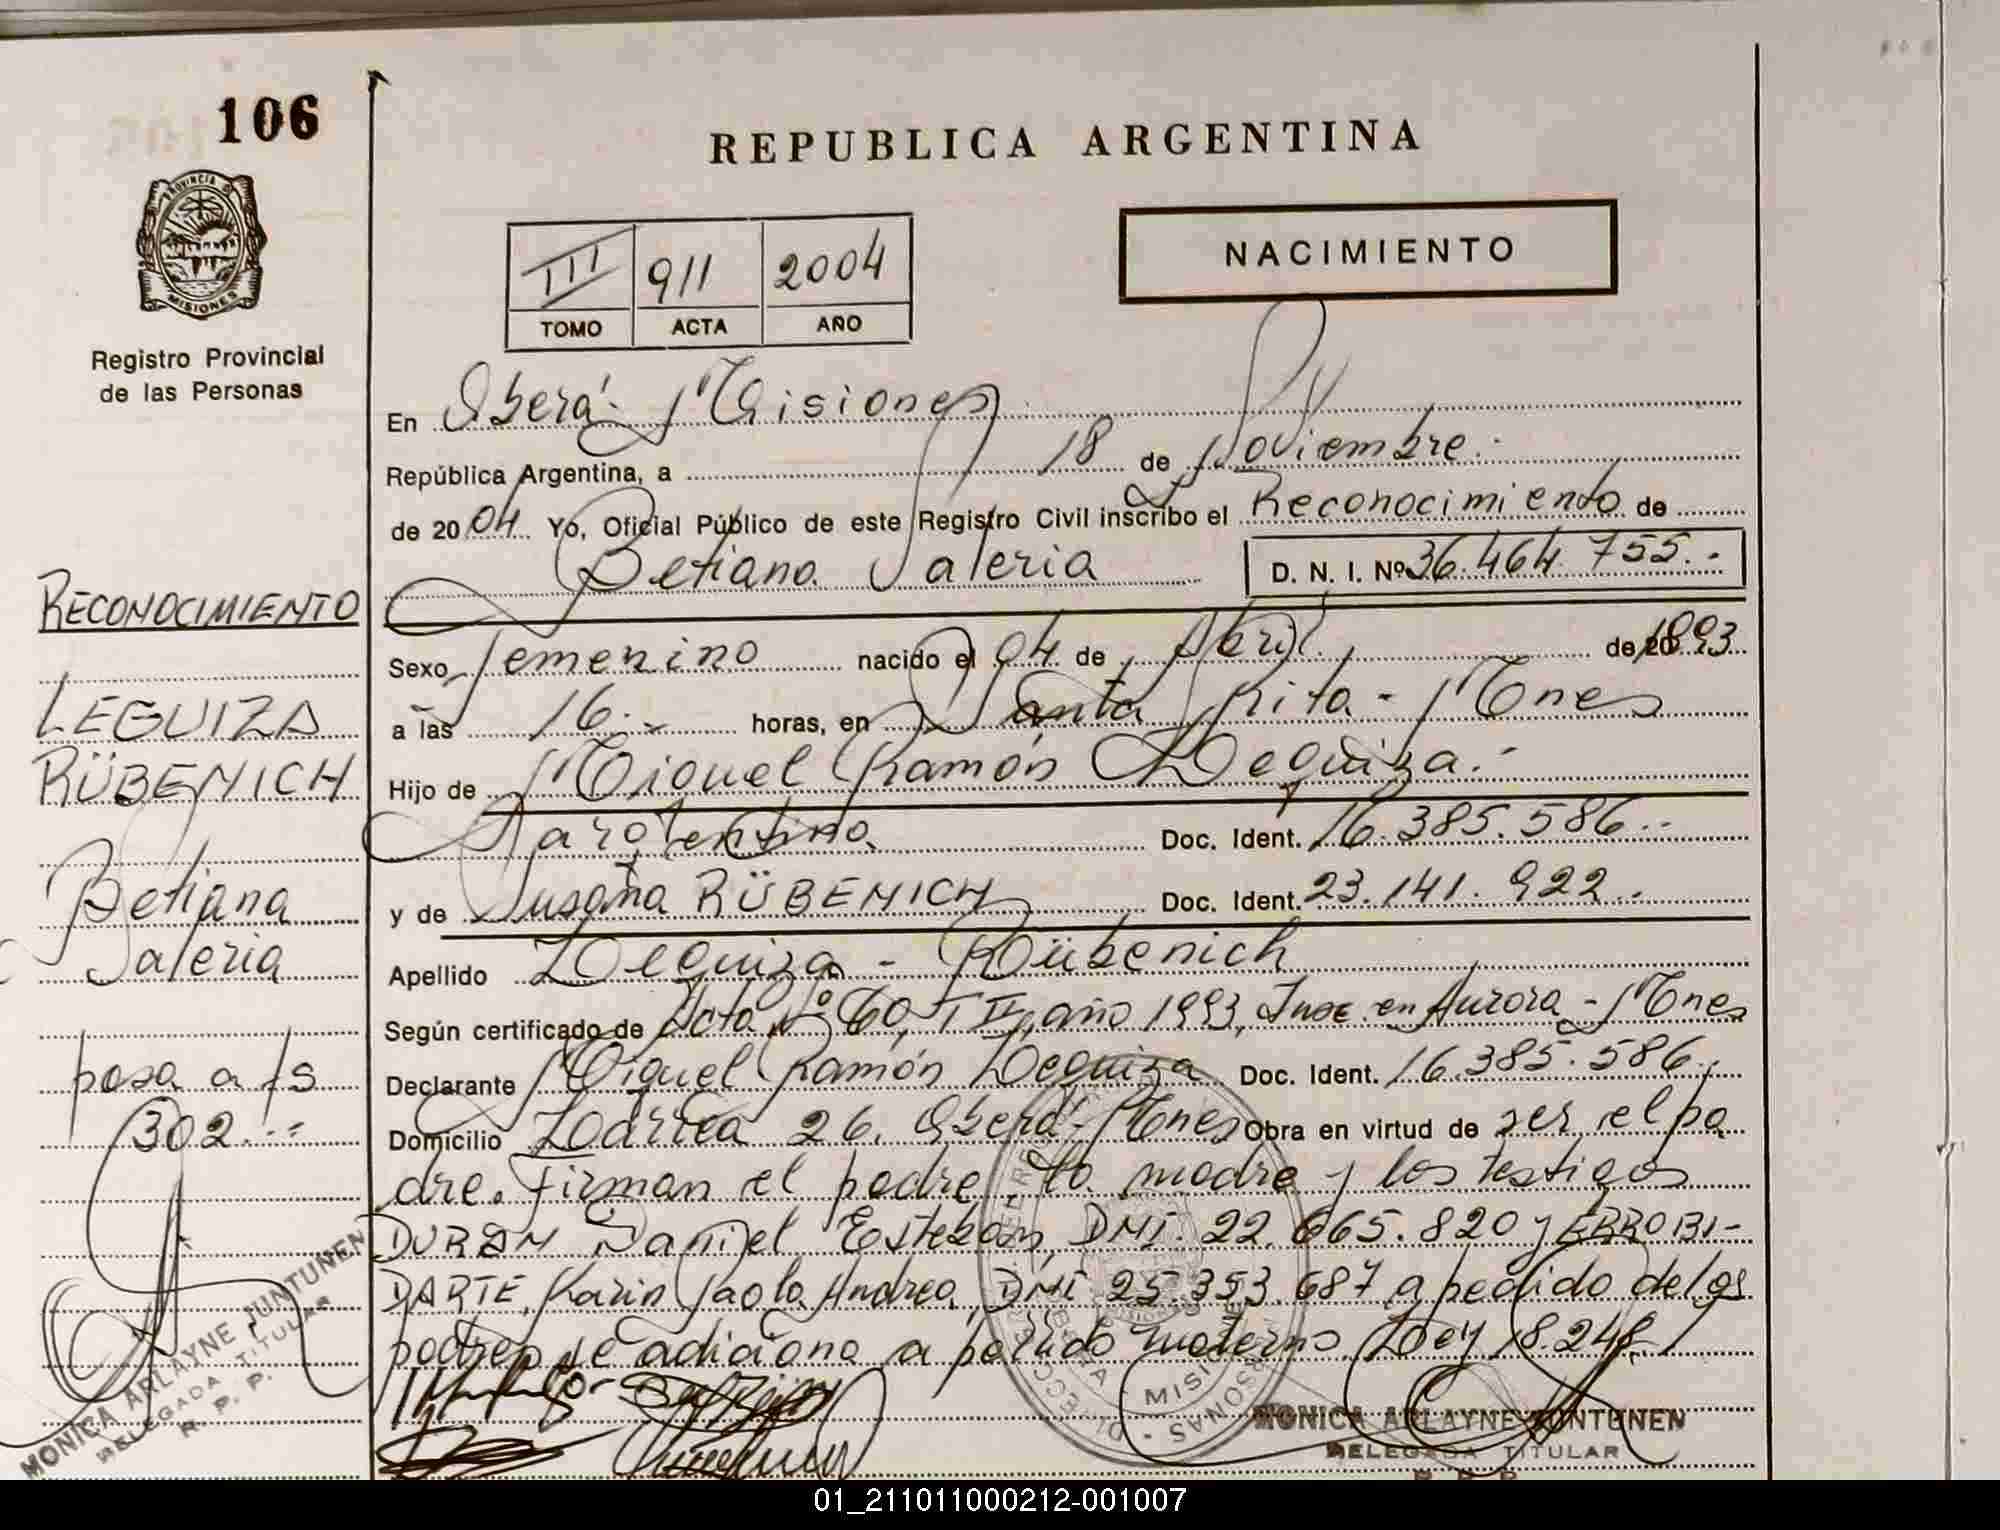 106
PROVINCIA DE
MISIONES
Registro Provincial
de las Personas
REPUBLICA ARGENTINA
NACIMIENTO
III 911 2004
TOMO ACTA AÑO
En Oberá - Misiones
República Argentina, a 18 de Noviembre.
de 2004 Yo, Oficial Público de este Registro Civil inscribo el Reconocimiento de
Betiana Valeria D. N. I. Nº 36.464.755.-
Sexo femenino nacido el 04 de Abril de 1993
a las 16.- horas, en Santa Rita - Mnes
Hijo de Miguel Ramón Leguiza.-
Argentino Doc. Ident. 16.385.586.-
y de Susana RÜBENICH Doc. Ident. 23.141.922.-
Apellido Leguiza - Rübenich
Según certificado de Acta Nº 60, T II, año 1993, Insc. en Aurora - Mnes
Declarante Miguel Ramón Leguiza Doc. Ident. 16.385.586.-
Domicilio Larrea 26. Oberá - Mnes Obra en virtud de ser el pa
dre. Firman el padre, la madre y los testigos
DURAN Daniel Esteban, DNI. 22.665.820 y ERROBI-
DARTE, Karin Paola Andrea, DNI 25.353.687 a pedido de los
padres se adiciona apellido materno. Ley 18.248.
MONICA ARLAYNE JUNTUNEN
DELEGADA TITULAR
R. P. P.
RECONOCIMIENTO
LEGUIZA
RÜBENICH
Betiana
Valeria
pasa a fs
302.--
MONICA ARLAYNE JUNTUNEN
DELEGADA TITULAR
R. P. P.
01_211011000212-001007